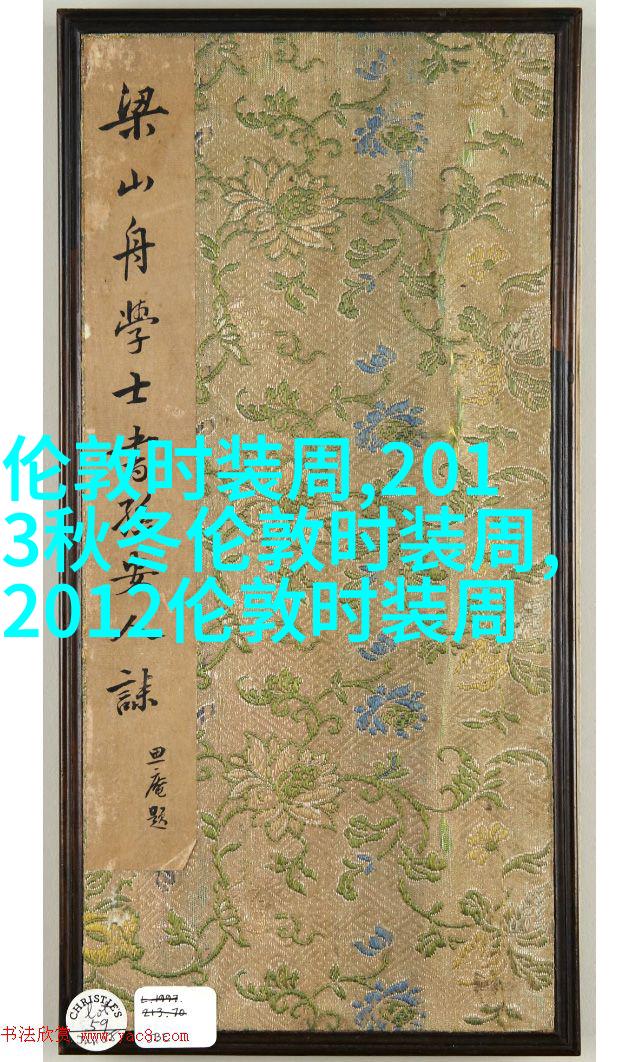 梁山舟學士書孫安人誄
庵題
伦敦时装周,201
3秋冬伦敦时装周,
2012伦敦时装周
CHRISTIE'S
Lot
59
L.1997.
213.70
书法欣赏 www.yac8.com